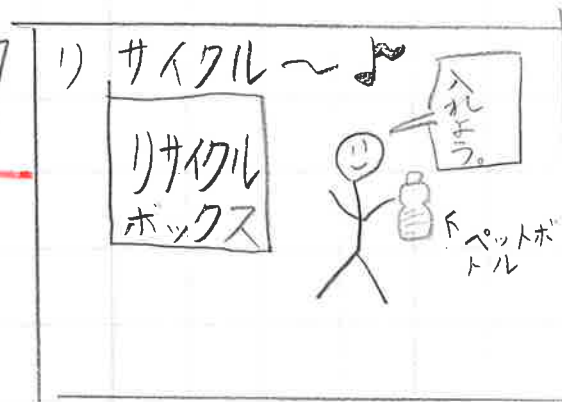 リサイクル～♪
リサイクル
ボックス
入れよう。
ペットボ
トル